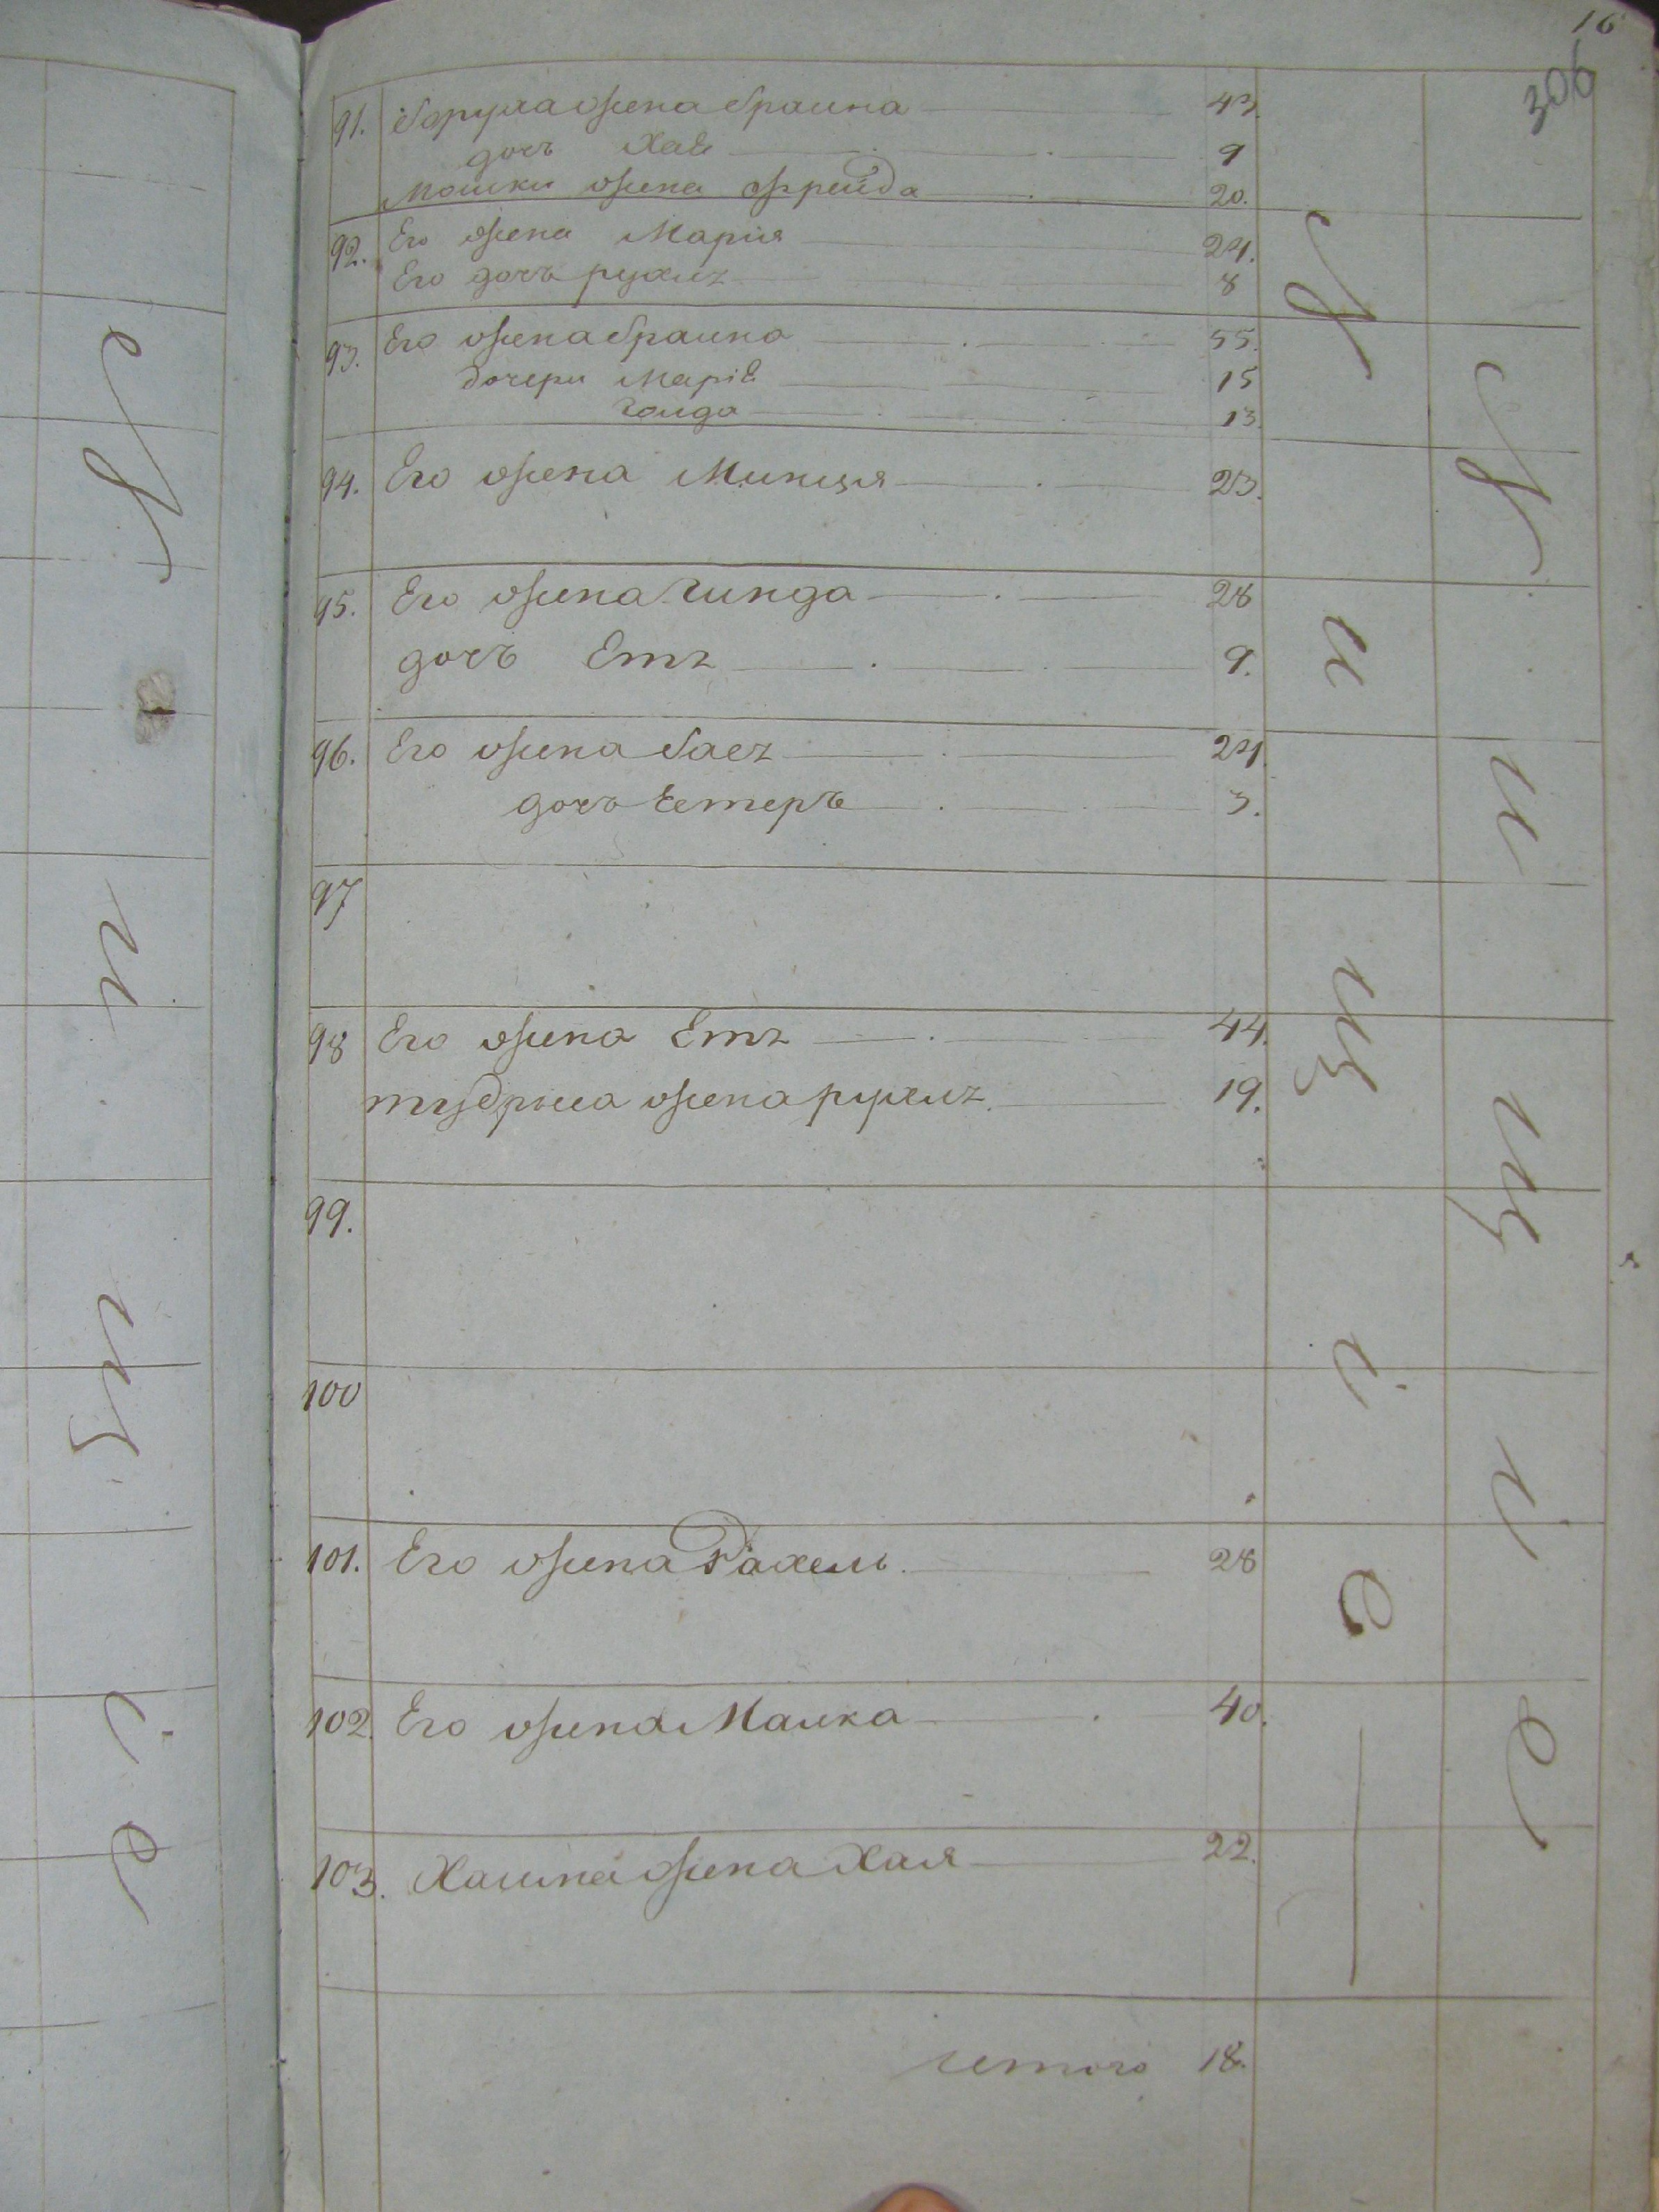 16
306
91. Боруха жена Браина 43.
дочь Хае 9
Мошки жена Фрейда 20.
92. Его жена Мария 24.
Его дочь рухля 8
93. Его жена Браина 55.
дочери Маріе 15
голда 13.
94. Его жена Минця 23.
95. Его жена гинда 28
дочь Етя 9.
96. Его жена Баея 24.
дочь Естеръ 3.
97
98 Его жена Етя 44.
жена рухля 19.
99.
100
101. Его жена Рахель 28
102. Его жена Малка 40.
103. жена Хая 22.
итого 18.